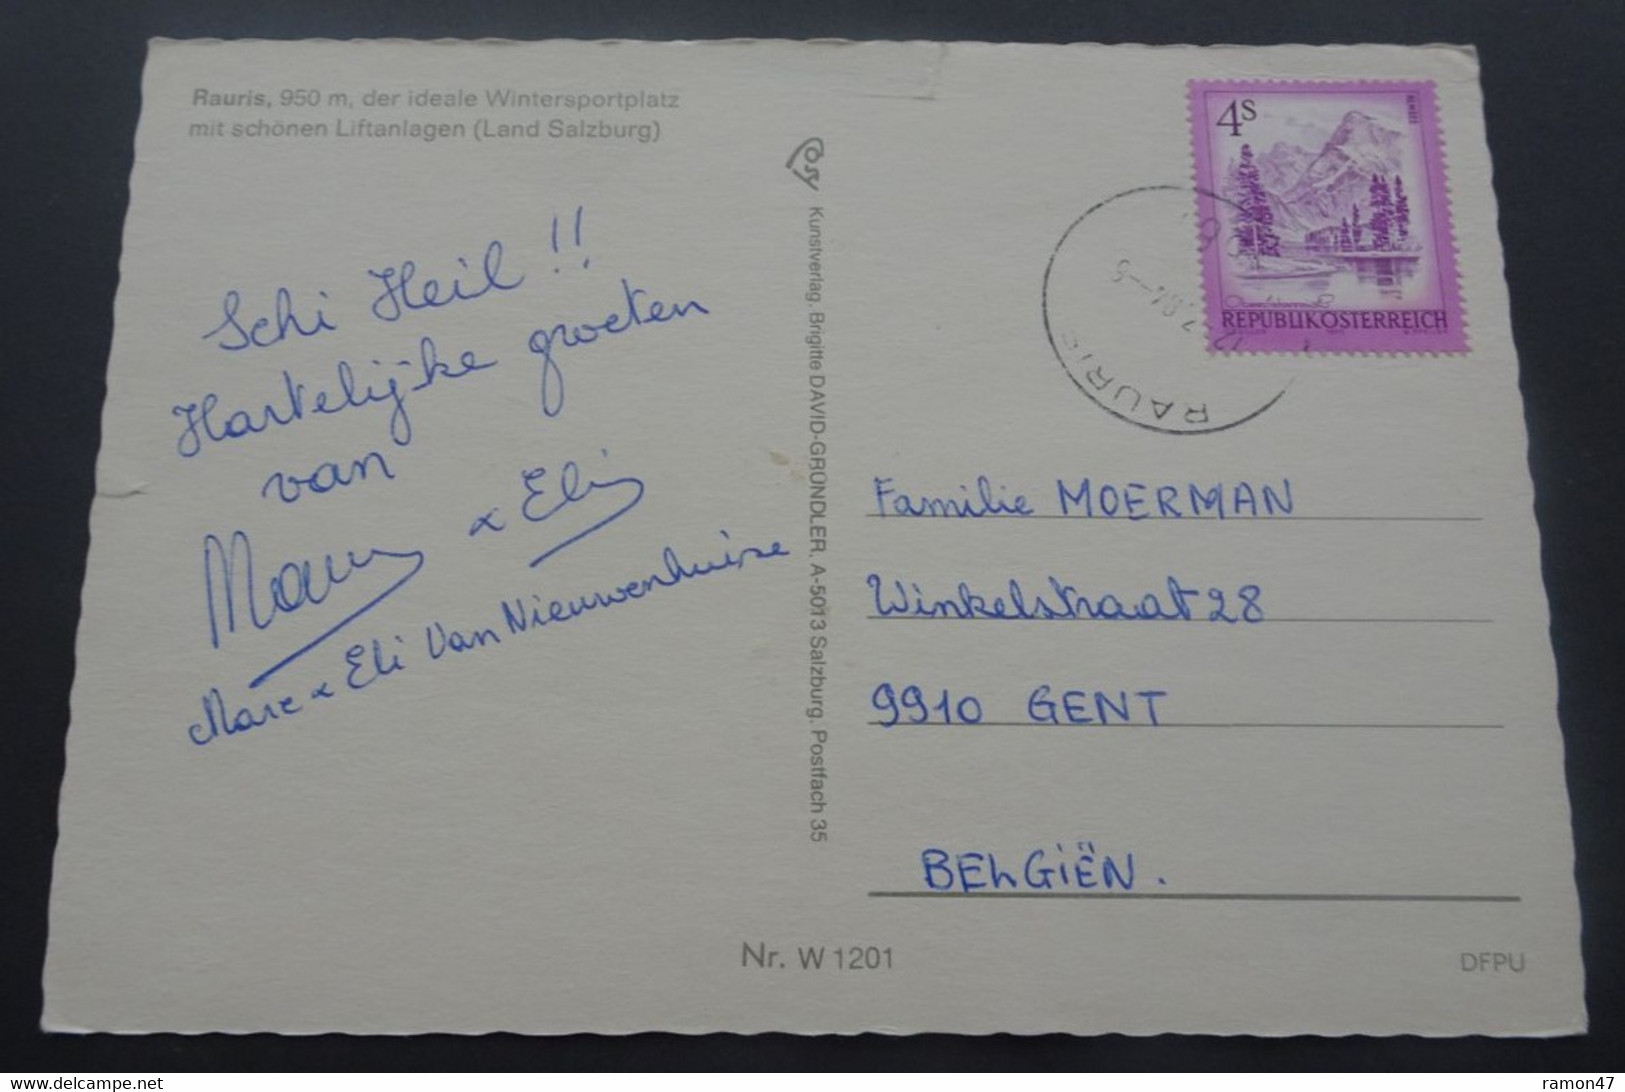 Rauris, 950 m, der ideale Wintersportplatz
mit schönen Liftanlagen (Land Salzburg)
Schi Heil !!
Hartelijke groeten
van
Marc & Eli
Marc & Eli Van Nieuwenhuize
Cosy Kunstverlag. Brigitte DAVID-GRÜNDLER. A-5013 Salzburg. Postfach 35
4S
ALMSEE
REPUBLIK ÖSTERREICH
RAURIS
Familie MOERMAN
Winkelstraat 28
9910 GENT
BELGIËN.
Nr. W 1201
DFPU
ramon47